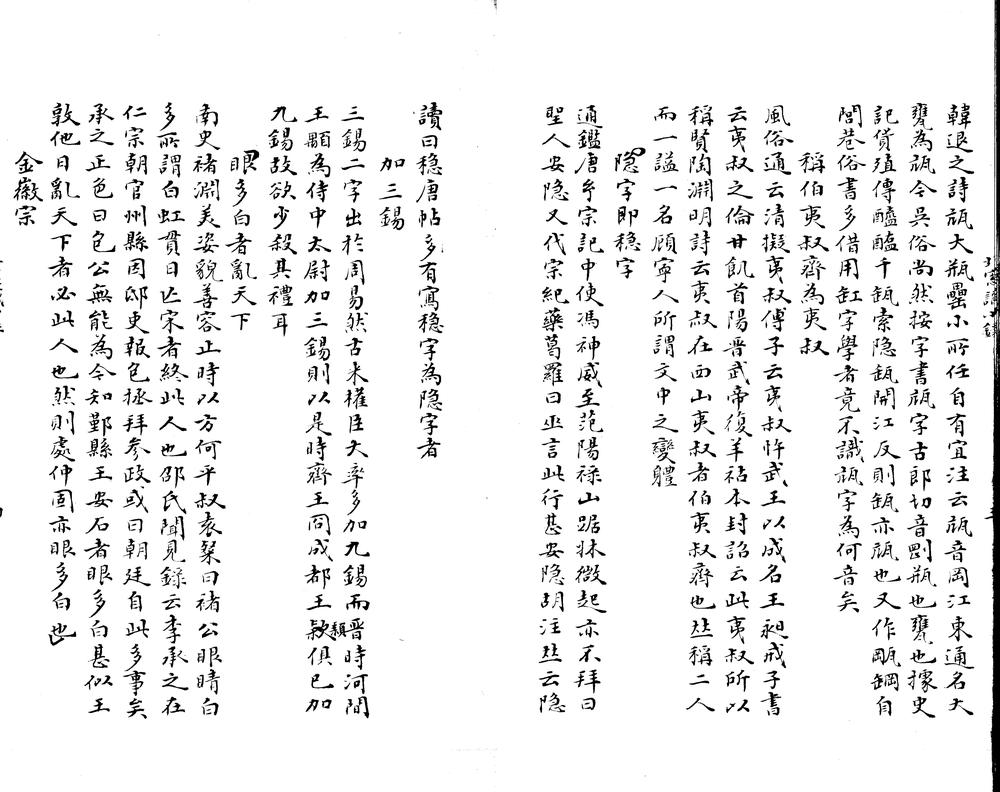 韓退之詩瓨大瓶罍小所任自有宜注云瓨音岡江東通名大
甕為瓨今吳俗尚然按字書瓨字古郎切音剛瓶也甕也據史
記貨殖傳醯醢千瓨索隐瓨閒江反則瓨亦瓨也又作㼚𦉈自
閭巷俗書多借用缸字學者竟不識瓨字為何音矣
稱伯夷叔齊為夷叔
風俗通云清擬夷叔傅子云夷叔忤武王以成名王昶戒子書
云夷叔之倫甘飢首陽晋武帝復羊祜本封詔云此夷叔所以
稱賢陶淵明詩云夷叔在西山夷叔者伯夷叔齊也玆稱二人
而一謚一名顧寧人所謂文中之變軆
隐字即穏字
通鑑唐玄宗記中使馮神威至范陽禄山踞牀微起亦不拜曰
聖人安隐又代宗紀藥葛羅曰巫言此行甚安隐胡注玆云隐
讀曰穏唐帖多有寫穏字為隐字者
加三錫
三錫二字出於周易然古来權臣大率多加九錫而晋時河間
王顒為侍中太尉加三錫則以是時齊王冏成都王穎俱已加
九錫故欲少殺其禮耳
眼多白者亂天下
南史褚淵美姿貌善容止時以方何平叔袁粲曰褚公眼睛白
多所謂白虹貫日亡宋者終此人也邵氏聞見錄云李承之在
仁宗朝官州縣因邸吏報包拯拜参政或曰朝廷自此多事矣
承之正色曰包公無能為今知鄞縣王安石者眼多白甚似王
敦他日亂天下者必此人也然則處仲固亦眼多白也
金徽宗